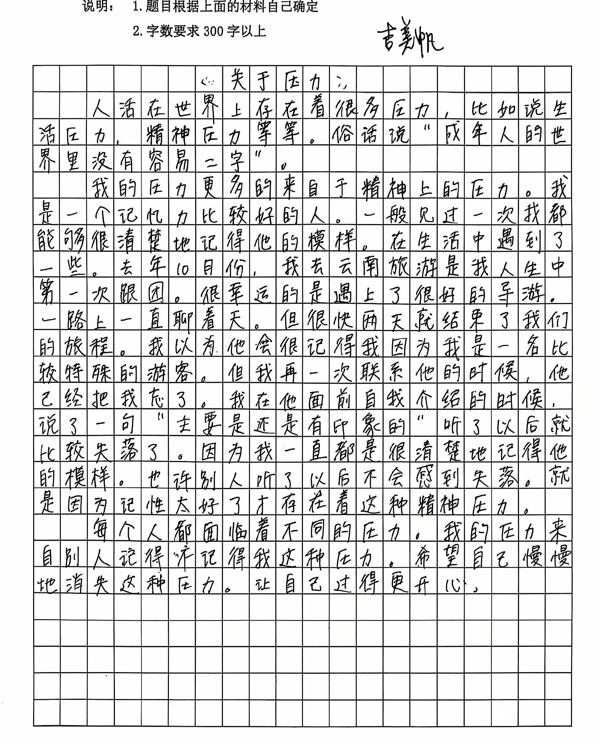 说明： 1.题目根据上面的材料自己确定
2.字数要求300字以上
吉美帆
关于压力
人活在世界上存在着很多压力，比如说生
活压力，精神压力等等。俗话说“成年人的世
界里没有容易二字”。
我的压力更多的来自于精神上的压力。我
是一个记忆力比较好的人。一般见过一次我都
能够很清楚地记得他的模样。在生活中遇到了
一些。去年10月份，我去云南旅游是我人生中
第一次跟团。很幸运的是遇上了很好的导游。
一路上一直聊着天。但很快两天就结束了我们
的旅程。我以为他会很记得我因为我是一名比
较特殊的游客。但我再一次联系他的时候，他
已经把我忘了。我在他面前自我介绍的时候，
说了一句“主要是还是有印象的“听了以后就
比较失落了。因为我一直都是很清楚地记得他
的模样。也许别人听了以后不会感到失落。就
是因为记性太好了才存在着这种精神压力。
每个人都面临着不同的压力。我的压力来
自别人记得不记得我这种压力。希望自己慢慢
地消失这种压力。让自己过得更开心。